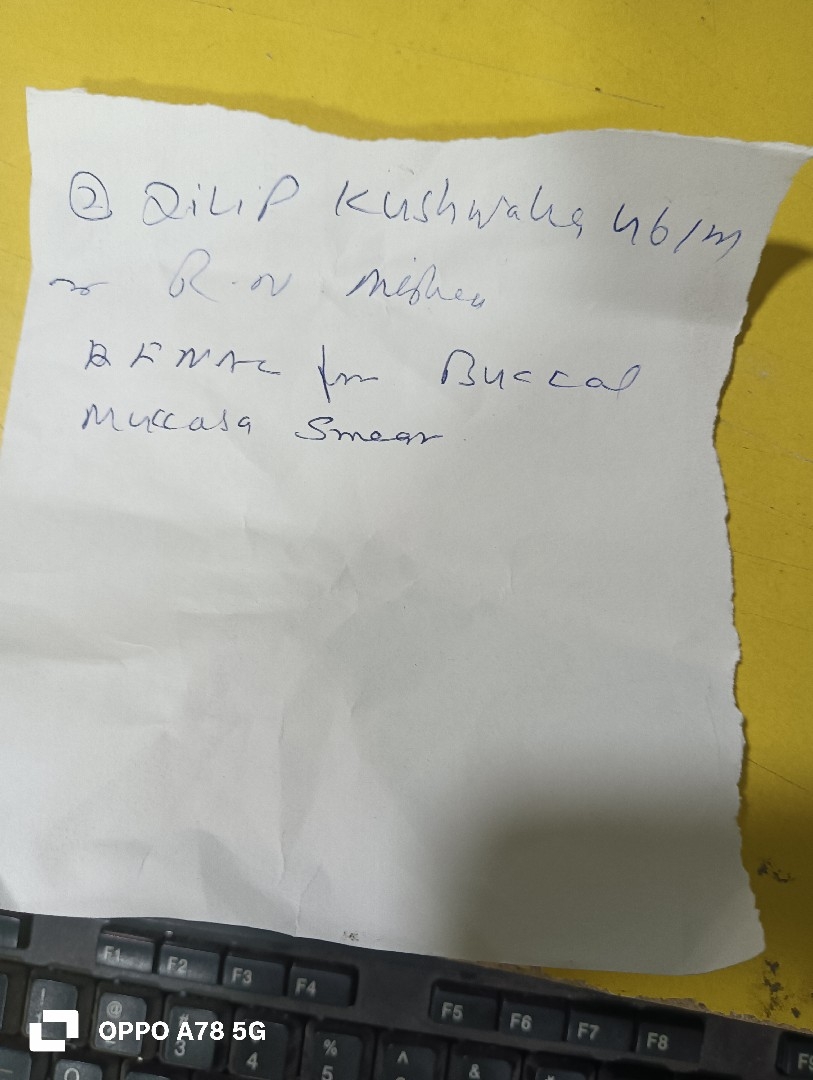 ② DiLiP Kushwaha 46/m
R.N Mishra
for Buccal
Muccasa Smear
F1 F2 F3 F4 F5 F6 F7 F8 F9
! @ # 3 4 % 5 ^ &
OPPO A78 5G